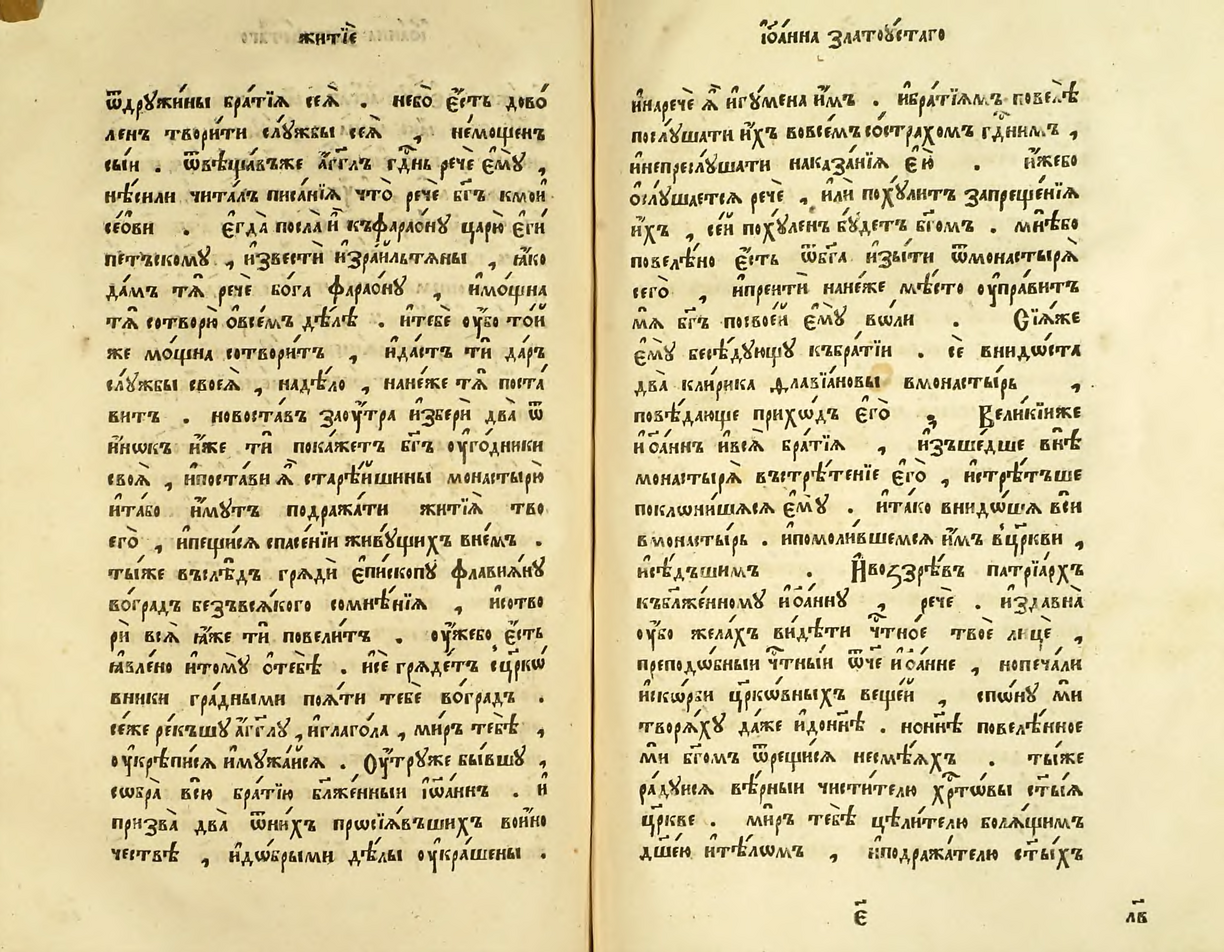 житїѐ
ѿдрꙋжи́ны бра́тїѧ сеѧ̀ . небо̀ є҆́сть дово́
ленъ твори́ти слꙋ́жбы сеѧ̀ , не́мощенъ
сы́и . ѿвѣща́въже а҆́гг҃лъ гд҃нь речѐ є҆мꙋ̀ ,
нѣ́сили чита́лъ писа́нїѧ что̀ речѐ бг҃ъ кмои
се́ови . є҆гда̀ посла̀ и҆̀ къфарао́нꙋ царю̀ є҆ги
пе́тъскомꙋ , и҆звести и҆зраи́льтѧны , ꙗ҆́ко
да́мъ тѧ̀ речѐ бо́га фарао́нꙋ , и҆мо́щна
тѧ̀ сотворю̀ ѻ҆все́мъ дѣ́лѣ . и҆тебѐ ᲂу҆́бо то́и
же мо́щна сотвори́тъ , и҆да́стъ ти́ да́ръ
слꙋ́жбы своеѧ̀ , надѣ́ло , нане́же тѧ̀ поста́
витъ . новоста́въ заоу҆́тра и҆збери́ два̀ ѿ
и҆́нѡкъ и҆́же ти́ пока́жетъ бг҃ъ ᲂу҆го́дники
своѧ̀ , и҆поста́ви ѧ҆̀ старѣ́ишины монастырю̀
и҆та́бо и҆́мꙋтъ подража́ти жити́ѧ тво
его̀ , и҆пещи́сѧ спасе́нїи живꙋ́щихъ вне́мъ .
ты́же въслѣ́дъ грѧдѝ є҆пи́скопꙋ флавиѧ́нꙋ
во́градъ безъвсѧ́кого сомнѣ́нїѧ , и҆сотво
рѝ всѧ̀ ꙗ҆́же тѝ повели́тъ . ᲂу҆́жебо є҆́сть
ꙗ҆вле́но и҆томꙋ̀ ѻ҆тебѣ̀ . и҆сѐ грѧде́тъ сцр҃кѡ
вники гра́дными поѧ́ти тебѐ во́градъ .
се́же ре́къшꙋ а҆́гг҃лꙋ , и҆глаго́ла , ми́ръ тебѣ̀ ,
ᲂу҆крѣ́писѧ и҆мꙋжа́исѧ . Ѹ҆́трꙋже бы́вшꙋ ,
сѡбра̀ всю̀ бра́тїю бл҃же́нныи і҆ѡа́ннъ . и҆
призва̀ два̀ ѿни́хъ прѡсїѧ́въшихъ во́ино
чествѣ̀ , и҆до́брыми дѣ́лы ᲂу҆кра́шены .
і҆ѻа́нна златоꙋ́стаго
и҆наречѐ ѧ҆̀ и҆гꙋ́мена и҆́мъ . и҆бра́тїѧмъ повелѣ̀
послꙋ́шати и҆́хъ вовсе́мъ состра́хомъ гд҇нимъ ,
и҆непреслꙋ́шати наказа́нїѧ є҆ю̀ . и҆́жебо
ѻ҆слꙋ́шаетсѧ речѐ , и҆лѝ похꙋ́литъ запреще́нїѧ
и҆́хъ , се́и похꙋ́ленъ бꙋ́детъ бг҃омъ . мнѣ́бо
повелѣ́но є҆́сть ѿбг҃а и҆зы́ти ѿмонастырѧ̀
сего̀ , и҆преити́ нане́же мѣ́сто ᲂу҆пра́витъ
мѧ̀ бг҃ъ посво́еи є҆мꙋ̀ во́ли . Сїѧ́же
є҆мꙋ̀ бесѣ́дꙋющꙋ къбра́тїи . сѐ внидо́ста
два̀ кли́рика флавїа́новы вмонасты́рь ,
повѣ́дающе прихо́дъ є҆го̀ . Вели́кїиже
и҆ѻа́ннъ и҆всѧ̀ бра́тїѧ , и҆зъше́дше внѣ̀
монастырѧ̀ въстрѣ́тенїе є҆го̀ , и҆стрѣ́тъше
поклони́шасѧ є҆мꙋ̀ . и҆та́ко внидо́шѧ всѝ
вмонасты́рь . и҆помоли́вшемсѧ и҆́мъ вцр҃кви ,
и҆сѣ́дъшимъ . И҆воззрѣ́въ патрїа́рхъ
къбл҃же́нномꙋ и҆ѻа́ннꙋ , речѐ . и҆здавна̀
ᲂу҆́бо жела́хъ ви́дѣти ч҇тно́е твоѐ лицѐ ,
преподо́бныи ч҇тны́и ѿч҃е и҆ѻа́нне , нопеча́ли
и҆ско́рби цр҃ко́вныхъ веще́и , спо́нꙋ мѝ
творѧ́хꙋ да́же и҆дон҃нѣ . нон҃нѣ повелѣ́нное
мѝ бг҃омъ ѿрещи́сѧ несмѣ́ѧхъ . ты́же
ра́дꙋисѧ вѣ́рныи чисти́телю хр҇то́вы ст҃ы́ѧ
цр҃кве . ми́ръ тебѣ̀ цѣли́телю болѧ́щимъ
дш҃е́ю и҆тѣ́ломъ , и҆подража́телю ст҃ы́хъ
є҃
лв